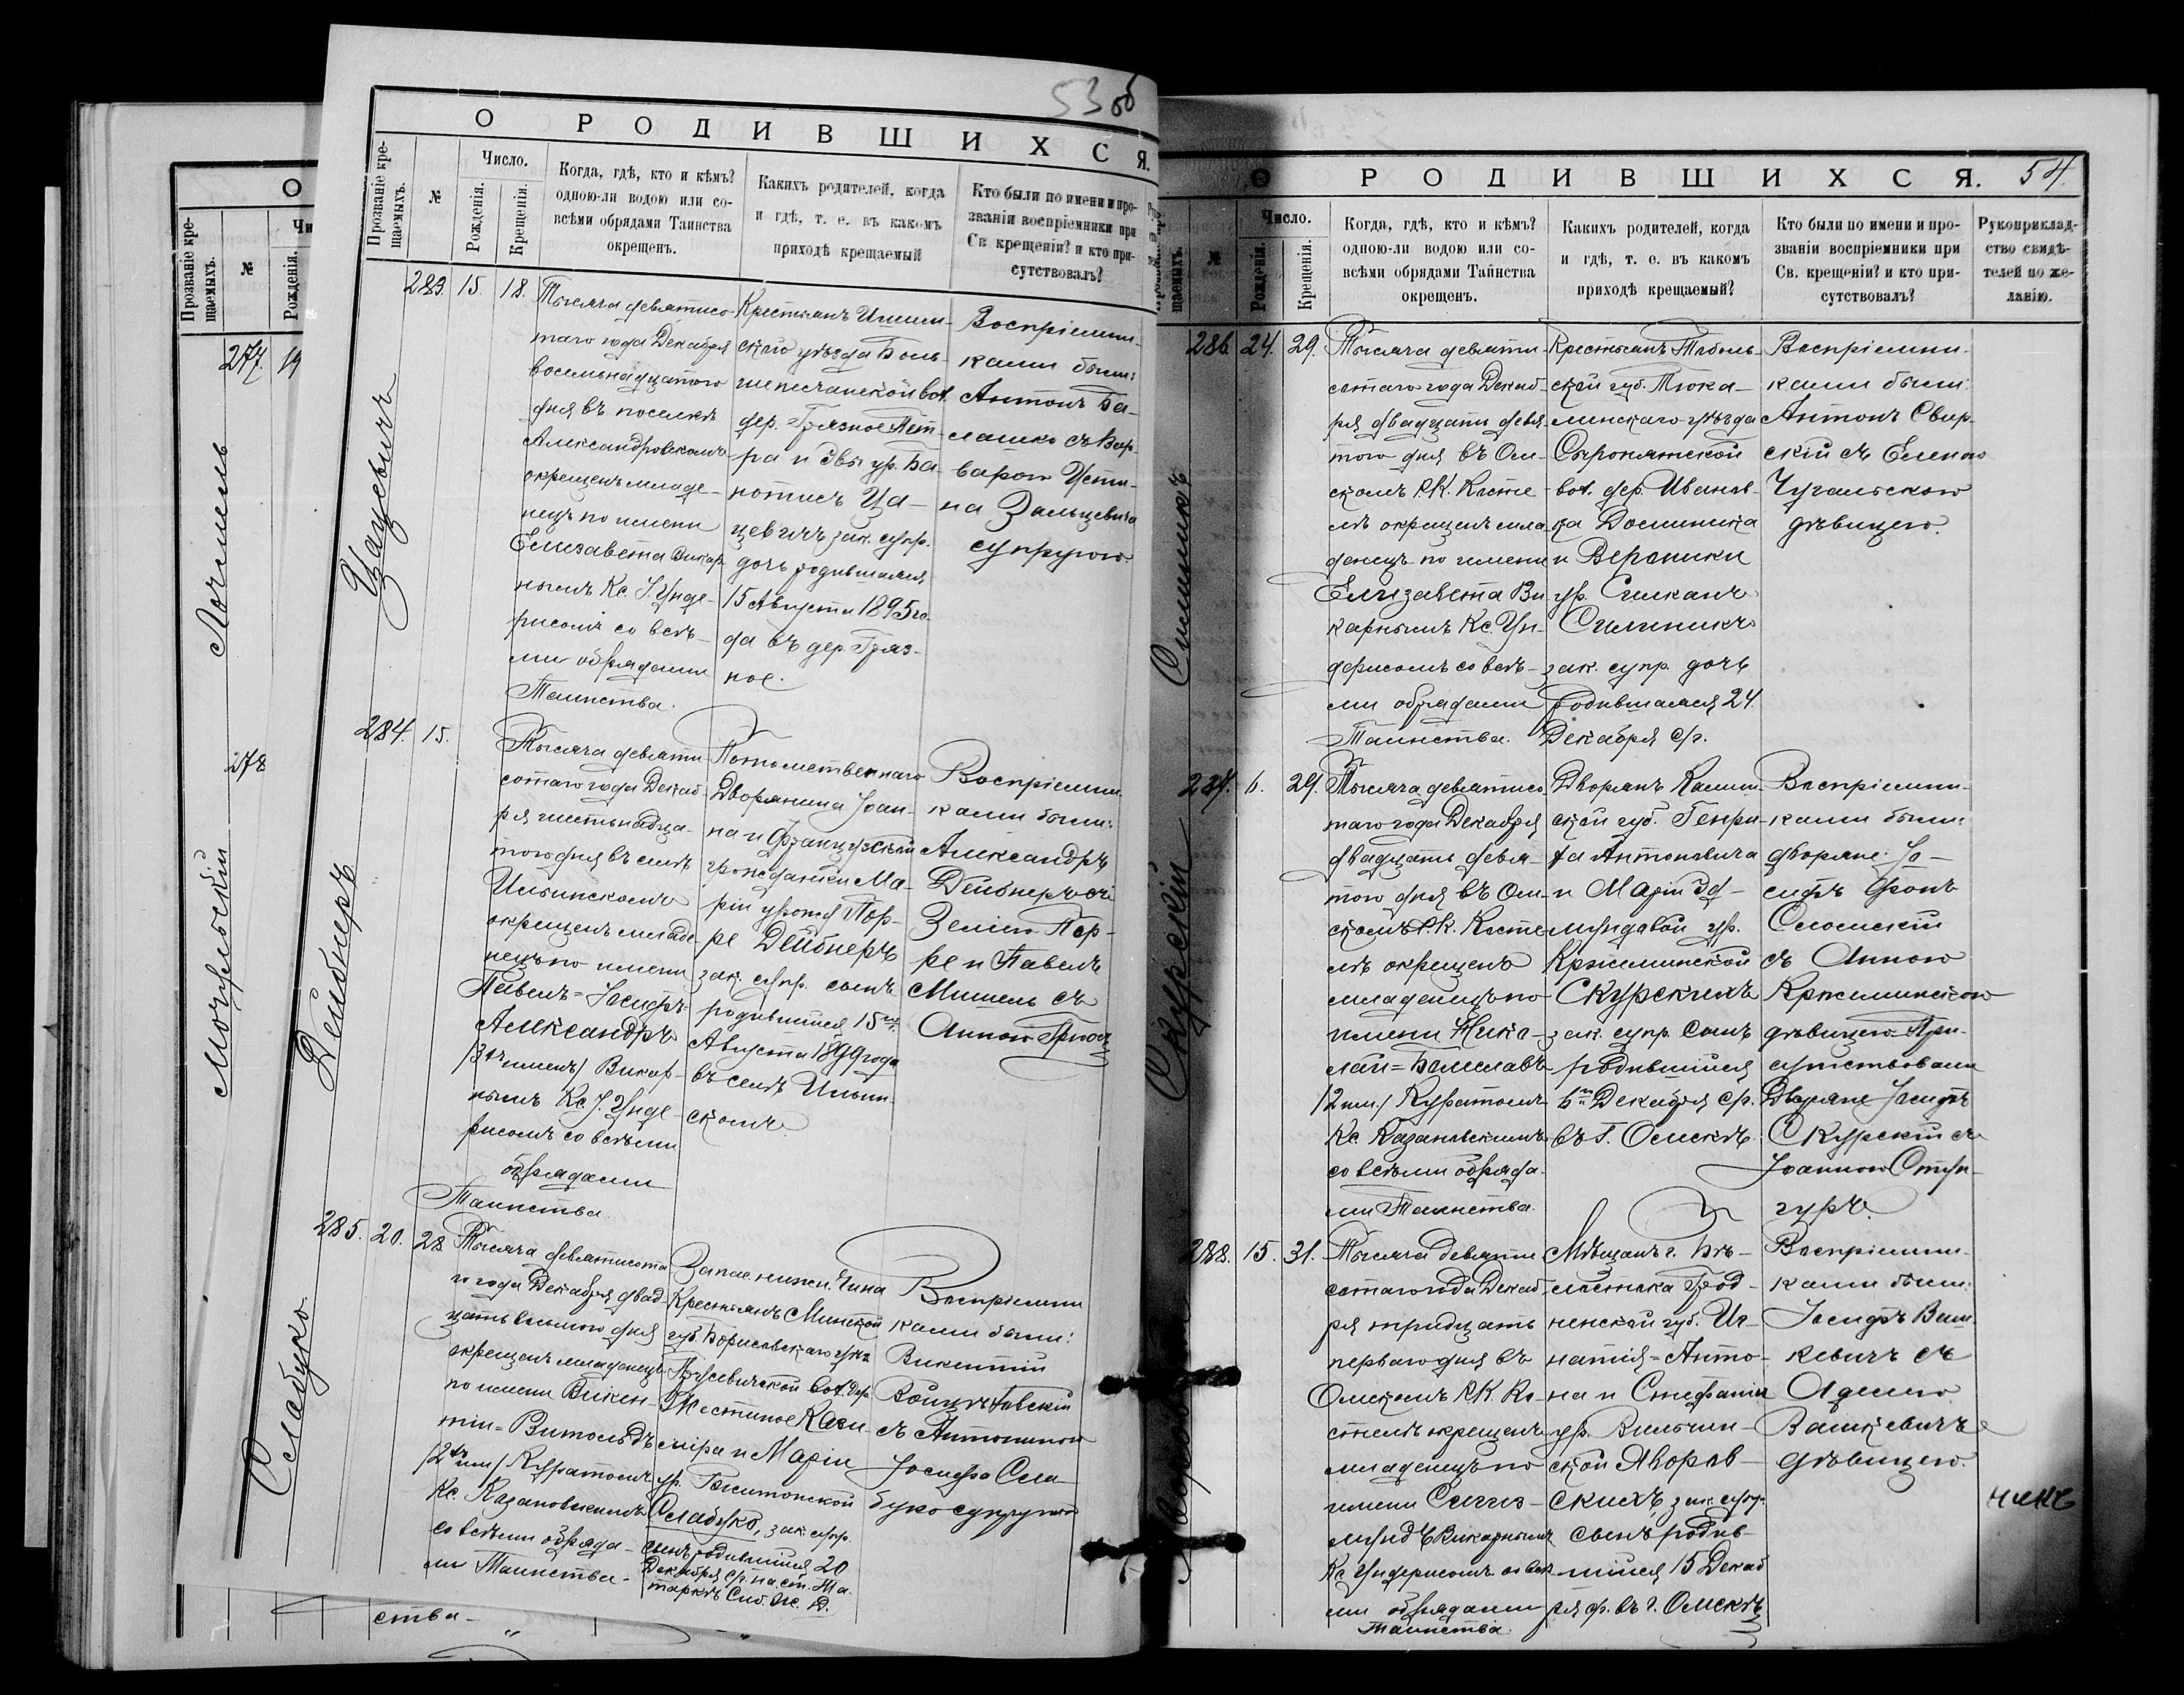 53 об
О РОДИВШИХСЯ.
Прозваніе кре-
щаемыхъ.
№
Число.
Рожденія.
Крещенія.
Когда, гдѣ, кто и кѣмъ?
одною-ли водою или со-
всѣми обрядами Таинства
окрещенъ.
Каких​ъ родителей, когда
и гдѣ, т. е. въ какомъ
приходѣ крещаемый
Кто были по имени и про-
званіи воспріемники при
Св. крещеніи? и кто при-
сутствовалъ?
277. 19
Лочмель
278
Мочульскій
283. 15. 18.
Цацевичъ
Тысяча девятисо-
таго года Декабря
восемьнадцатого
дня въ поселкѣ
Александровскомъ
окрещенъ младе-
нецъ по имени
Елизавета Викар-
нымъ Кс. І. Унде-
рисомъ со всѣ-
ми обрядами
Таинства.
Крестьянъ Ишим-
скаго уѣзда Боль-
шепесчанской вол.
дер. Грязное Пет-
ра и Эвы ур. Ба-
нотисъ Ца-
цевичъ зак. супр.
дочь родившаяся
15 Августа 1895 го-
да въ дер. Гряз-
ное.
Воспріемни-
ками были:
Антонъ Ба-
лашко съ Вар-
варою Усти-
на Зальцевича
супругою.
284. 15.
Дейбнеръ
Тысяча девяти
сотаго года Декаб-
ря шестьнадца-
того дня въ селѣ
Ильинскомъ
окрещенъ младе-
нецъ по имени
Павелъ=Іосифъ
Александръ
/3хъ именъ/ Викар-
нымъ Кс. І. Унде-
рисомъ со всѣми
обрядами
Таинства.
Потомственнаго
Дворянина Іоан-
на и Французской
гражданки Ма-
ріи урожд Пор-
ре Дейбнеръ
зак. супр. сынъ
родившійся 15го
Августа 1899 года
въ селѣ Ильин-
скомъ.
Воспріемни-
ками были:
Александръ
Дейбнеръ съ
Зеліею Пор-
ре и Павелъ
Мишель съ
Анною
285. 20. 28.
Слабуко.
Тысяча девятисота
го года Декабря двад-
цать восьмого дня
окрещенъ младенецъ
по имени Викен-
тій=Витольдъ
/2хъ им/ Куратомъ
Кс. Казановскимъ
со всѣми обряда-
ми Таинства.
Запас нижн. Чина
Крестьянъ Минской
губ. Борисовскаго уѣз.
вол. дер.
Жестиное Кази-
міра и Маріи
ур.
Слабуко, зак супр.
сынъ родившійся 20
Декабря с/г на ст. Та-
таркѣ Сиб. Ж. Д.
Воспріемни
ками были:
Викентій
Войцѣховскій
съ Антониною
Іосифа Сла-
буко супругою
ства
О РОДИВШИХСЯ. 54.
щаемыхъ.
№
Число.
Рожденія.
Крещенія.
Когда, гдѣ, кто и кѣмъ?
одною-ли водою или со-
всѣми обрядами Таинства
окрещенъ.
Какихъ родителей, когда
и гдѣ, т. е. въ какомъ
приходѣ крещаемый?
Кто были по имени и про-
званіи воспріемники при
Св. крещеніи? и кто при-
сутствовалъ?
Рукоприклад-
ство свидѣ-
телей по же-
ланію.
286. 24. 29.
Силиникъ
Тысяча девяти-
сотаго года Декаб-
ря двадцать девя-
того дня въ Ом-
скомъ Р.К. Косте-
лѣ окрещенъ мла
денецъ по имени
Елизавета Ви-
карнымъ Кс. Ун-
дерисомъ со всѣ-
ми обрядами
Таинства.
Крестьянъ Тоболь-
ской губ. Тюка-
линскаго уѣзда
Сыропятской
вол. дер. Иванов-
ка Доминика
и Вероники
ур. Силканъ
Силиникъ
зак. супр. дочь
родившаяся 24
Декабря с/г.
Воспріемни-
ками были:
Антонъ Свир-
скій съ Еленою
Чугальскою
дѣвицею.
287. 6. 29.
Скурскій
Тысяча девятисо-
таго года Декабря
двадцать девя-
того дня въ Ом-
скомъ Р.К. Косте-
лѣ окрещенъ
младенецъ по
имени Нико-
лай=Болеславъ
/2 им./ Куратомъ
Кс. Казановскимъ
со всѣми обряда-
ми Таинства.
Дворянъ Калиш-
ской губ. Генри-
ха Антоновича
и Маріи Эд-
мундовой ур.
Кржеминской
Скурскихъ
зак. супр. сынъ
родившійся
6го Декабря с/г.
въ г. Омскѣ.
Воспріемни-
ками были:
дворяне: Іо-
сифъ Фонъ
съ Анною
Кржеминскою
дѣвицею. При-
сутствовали
Дворяне Іосифъ
Скурскій съ
Іоанною Стри-
гуръ.
288. 15. 31.
Тысяча девяти
сотаго года Декаб-
ря тридцать
перваго дня въ
Омскомъ Р.К. Ко-
стелѣ окрещенъ
младенецъ по
имени Сигиз-
мундъ Викарнымъ
Кс Ундерисомъ со всѣ-
ми обрядами
Таинства.
Мѣщанъ г. Бѣ-
лостока Грод-
ненской губ. Иг-
натія=Анто-
на и Стефаніи
ур. Вильчин-
ской Яворов-
скихъ, зак. супр.
сынъ родив-
шійся 15 Декаб
ря ф. въ г. Омскѣ
Воспріемни-
ками были:
Іосифъ Ваш-
кевичъ съ
Аделею
Вашкевичъ
дѣвицею.